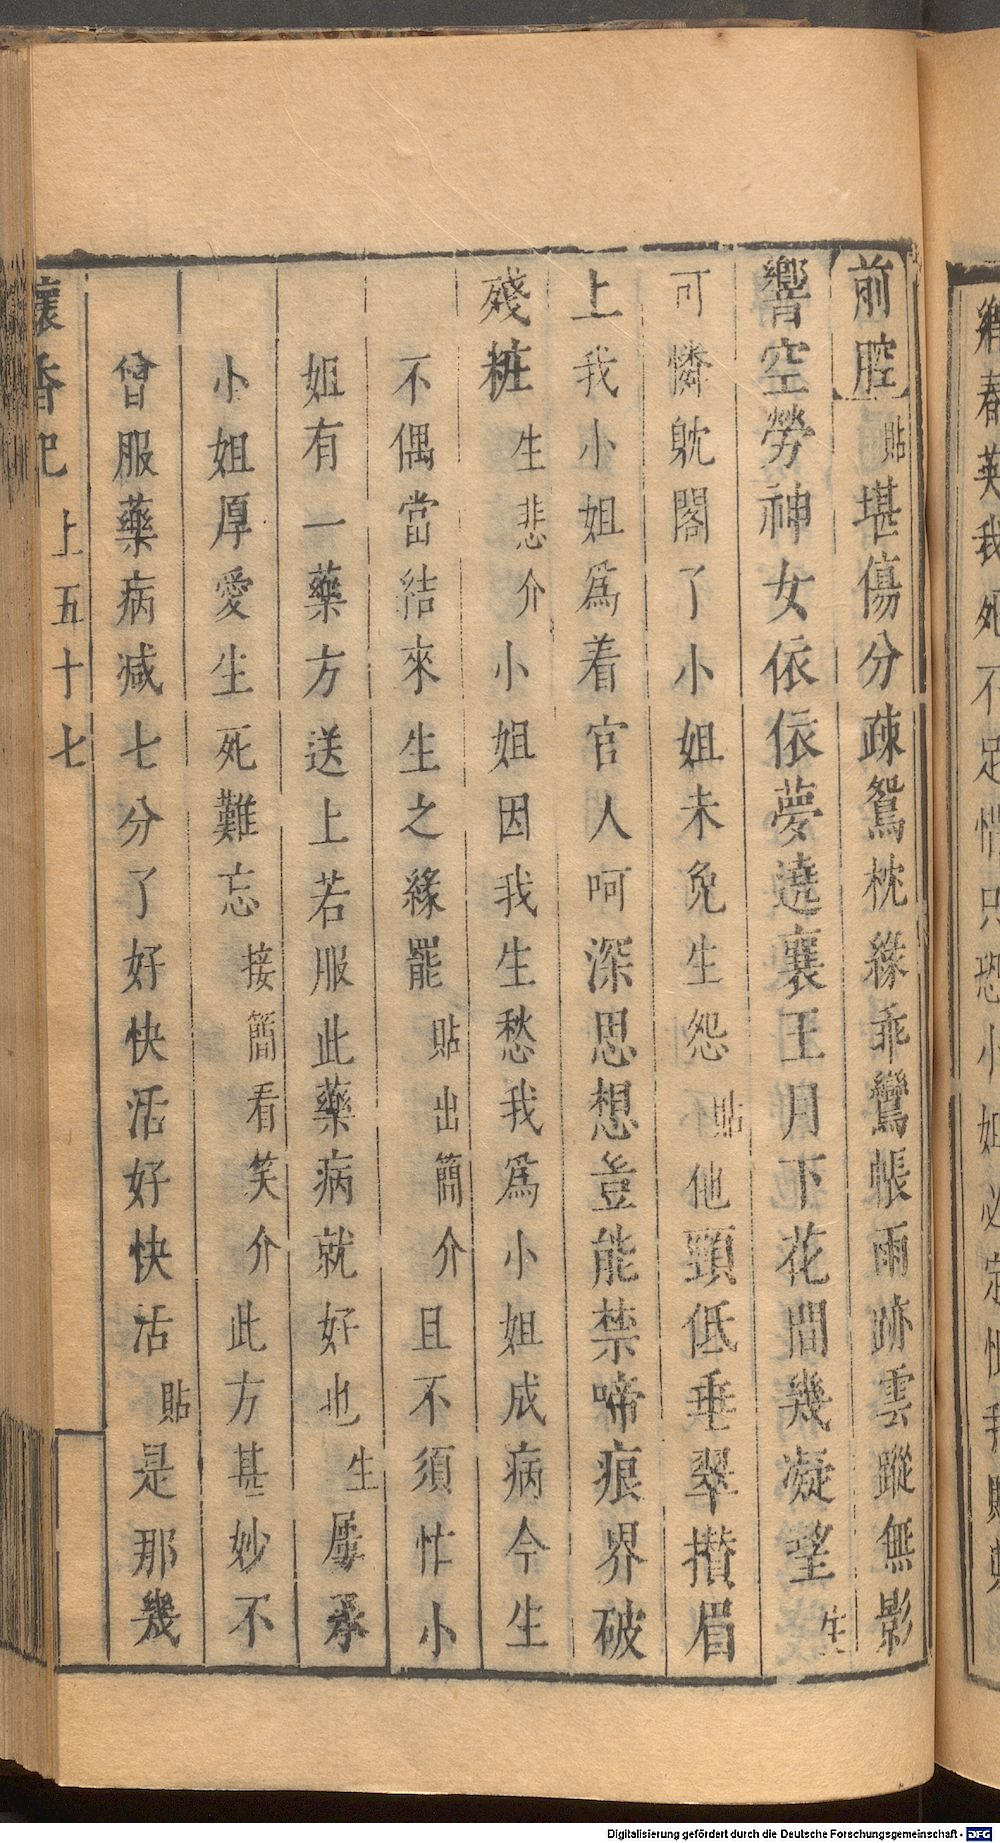 前腔 貼 堪傷分疎鴛枕緣乖鸞帳雨跡雲蹤無影
響空勞神女依依夢遶襄王月下花間幾凝望 生
可憐躭閣了小姐未免生怨 貼 他頸低垂翠攢眉
上我小姐爲着官人呵深思想豈能禁啼痕界破
殘粧 生悲介 小姐因我生愁我爲小姐成病今生
不偶當結來生之緣罷 貼出簡介 且不須怍小
姐有一藥方送上若服此藥病就好也 生 屢承
小姐厚愛生死難忘 接簡看笑介 此方甚妙不
曾服藥病减七分了好快活好快活 貼 是那幾
懷香記 上五十七
春英我死不足惜只恐小姐必
Digitalisierung gefördert durch die Deutsche Forschungsgemeinschaft - DFG